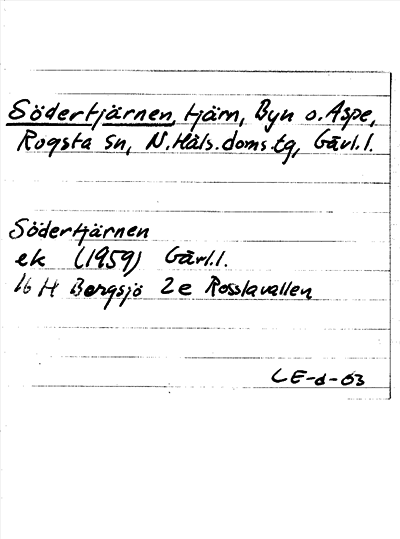 Södertjärnen, tjärn, Byn o. Aspe,
Rogsta sn, N. Häls. doms. tg, Gävl. l.
Södertjärnen
ek (1959) Gävl. l.
16 H Bergsjö 2 e Rosslavallen
LE-d-63